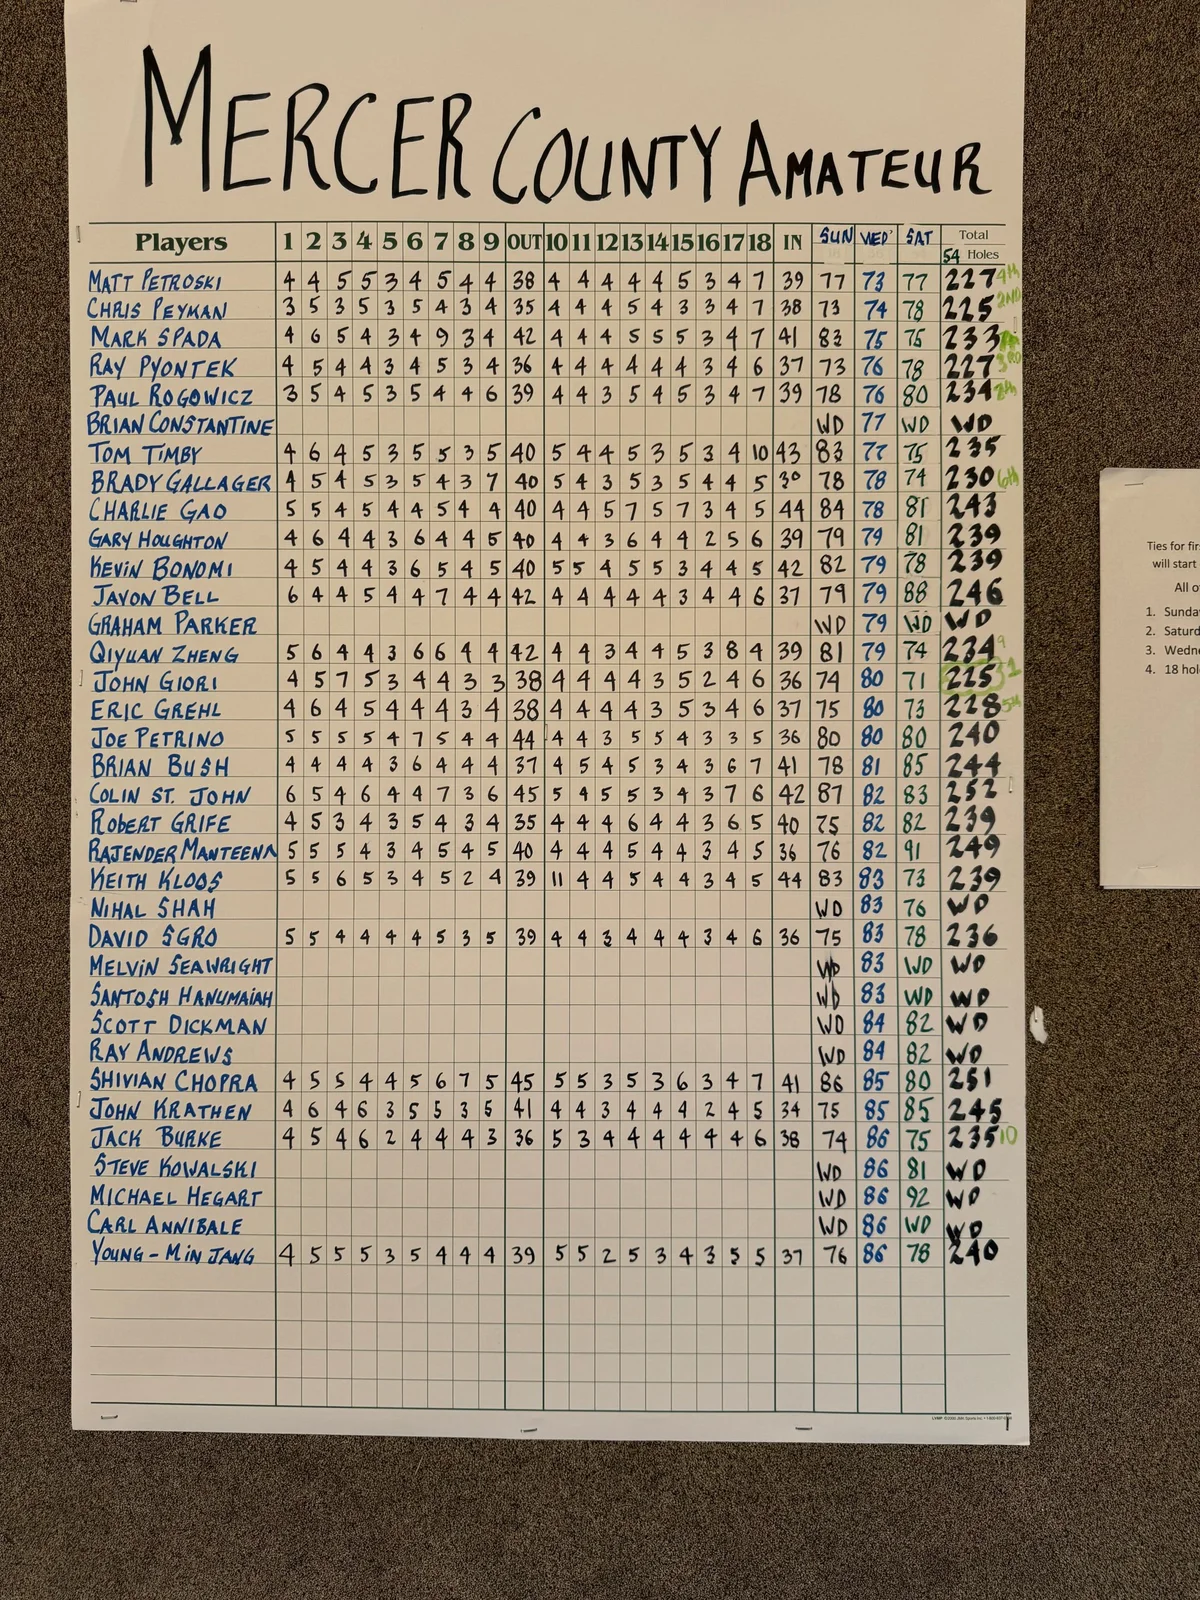 MERCER COUNTY AMATEUR
Players 1 2 3 4 5 6 7 8 9 OUT 10 11 12 13 14 15 16 17 18 IN SUN WED' SAT Total
54 Holes
MATT PETROSKI 4 4 5 5 3 4 5 4 4 38 4 4 4 4 4 5 3 4 7 39 77 73 77 227 4th
CHRIS PEYMAN 3 5 3 5 3 5 4 3 4 35 4 4 4 5 4 3 3 4 7 38 73 74 78 225 2ND
MARK SPADA 4 6 5 4 3 4 9 3 4 42 4 4 4 5 5 5 3 4 7 41 83 75 75 233
RAY PYONTEK 4 5 4 4 3 4 5 3 4 36 4 4 4 4 4 4 3 4 6 37 73 76 78 227 3RD
PAUL ROGOWICZ 3 5 4 5 3 5 4 4 6 39 4 4 3 5 4 5 3 4 7 39 78 76 80 234
BRIAN CONSTANTINE WD 77 WD WD
TOM TIMBY 4 6 4 5 3 5 5 3 5 40 5 4 4 5 3 5 3 4 10 43 83 77 75 235
BRADY GALLAGER 4 5 4 5 3 5 4 3 7 40 5 4 3 5 3 5 4 4 5 78 78 74 230 6th
CHARLIE GAO 5 5 4 5 4 4 5 4 4 40 4 4 5 7 5 7 3 4 5 44 84 78 81 243
GARY HOUGHTON 4 6 4 4 3 6 4 4 5 40 4 4 3 6 4 4 2 5 6 39 79 79 81 239
KEVIN BONOMI 4 5 4 4 3 6 5 4 5 40 5 5 4 5 5 3 4 4 5 42 82 79 78 239
JAVON BELL 6 4 4 5 4 4 7 4 4 42 4 4 4 4 4 3 4 4 6 37 79 79 88 246
GRAHAM PARKER WD 79 WD WD
QIYUAN ZHENG 5 6 4 4 3 6 6 4 4 42 4 4 3 4 4 5 3 8 4 39 81 79 74 234 9
JOHN GIORI 4 5 7 5 3 4 4 3 3 38 4 4 4 4 3 5 2 4 6 36 74 80 71 225 1
ERIC GREHL 4 6 4 5 4 4 4 3 4 38 4 4 4 4 3 5 3 4 6 37 75 80 73 228 5th
JOE PETRINO 5 5 5 5 4 7 5 4 4 44 4 4 3 5 5 4 3 3 5 36 80 80 80 240
BRIAN BUSH 4 4 4 4 3 6 4 4 4 37 4 5 4 5 3 4 3 6 7 41 78 81 85 244
COLIN ST. JOHN 6 5 4 6 4 4 7 3 6 45 5 4 5 5 3 4 3 7 6 42 87 82 83 252
ROBERT GRIFE 4 5 3 4 3 5 4 3 4 35 4 4 4 6 4 4 3 6 5 40 75 82 82 239
RAJENDER MANTEENA 5 5 5 4 3 4 5 4 5 40 4 4 4 5 4 4 3 4 5 36 76 82 91 249
KEITH KLOOS 5 5 6 5 3 4 5 2 4 39 11 4 4 5 4 4 3 4 5 44 83 83 73 239
NIHAL SHAH WD 83 76 WD
DAVID SGRO 5 5 4 4 4 4 5 3 5 39 4 4 3 4 4 4 3 4 6 36 75 83 78 236
MELVIN SEAWRIGHT WD 83 WD WD
SANTOSH HANUMAIAH WD 83 WD WD
SCOTT DICKMAN WD 84 82 WD
RAY ANDREWS WD 84 82 WD
SHIVIAN CHOPRA 4 5 5 4 4 5 6 7 5 45 5 5 3 5 3 6 3 4 7 41 86 85 80 251
JOHN KRATHEN 4 6 4 6 3 5 5 3 5 41 4 4 3 4 4 4 2 4 5 34 75 85 85 245
JACK BURKE 4 5 4 6 2 4 4 4 3 36 5 3 4 4 4 4 4 4 6 38 74 86 75 235 10
STEVE KOWALSKI WD 86 81 WD
MICHAEL HEGART WD 86 92 WD
CARL ANNIBALE WD 86 WD WD
YOUNG-MIN JANG 4 5 5 5 3 5 4 4 4 39 5 5 2 5 3 4 3 5 5 37 76 86 78 240
Ties for
will start
All
1.
2.
3.
4. 18